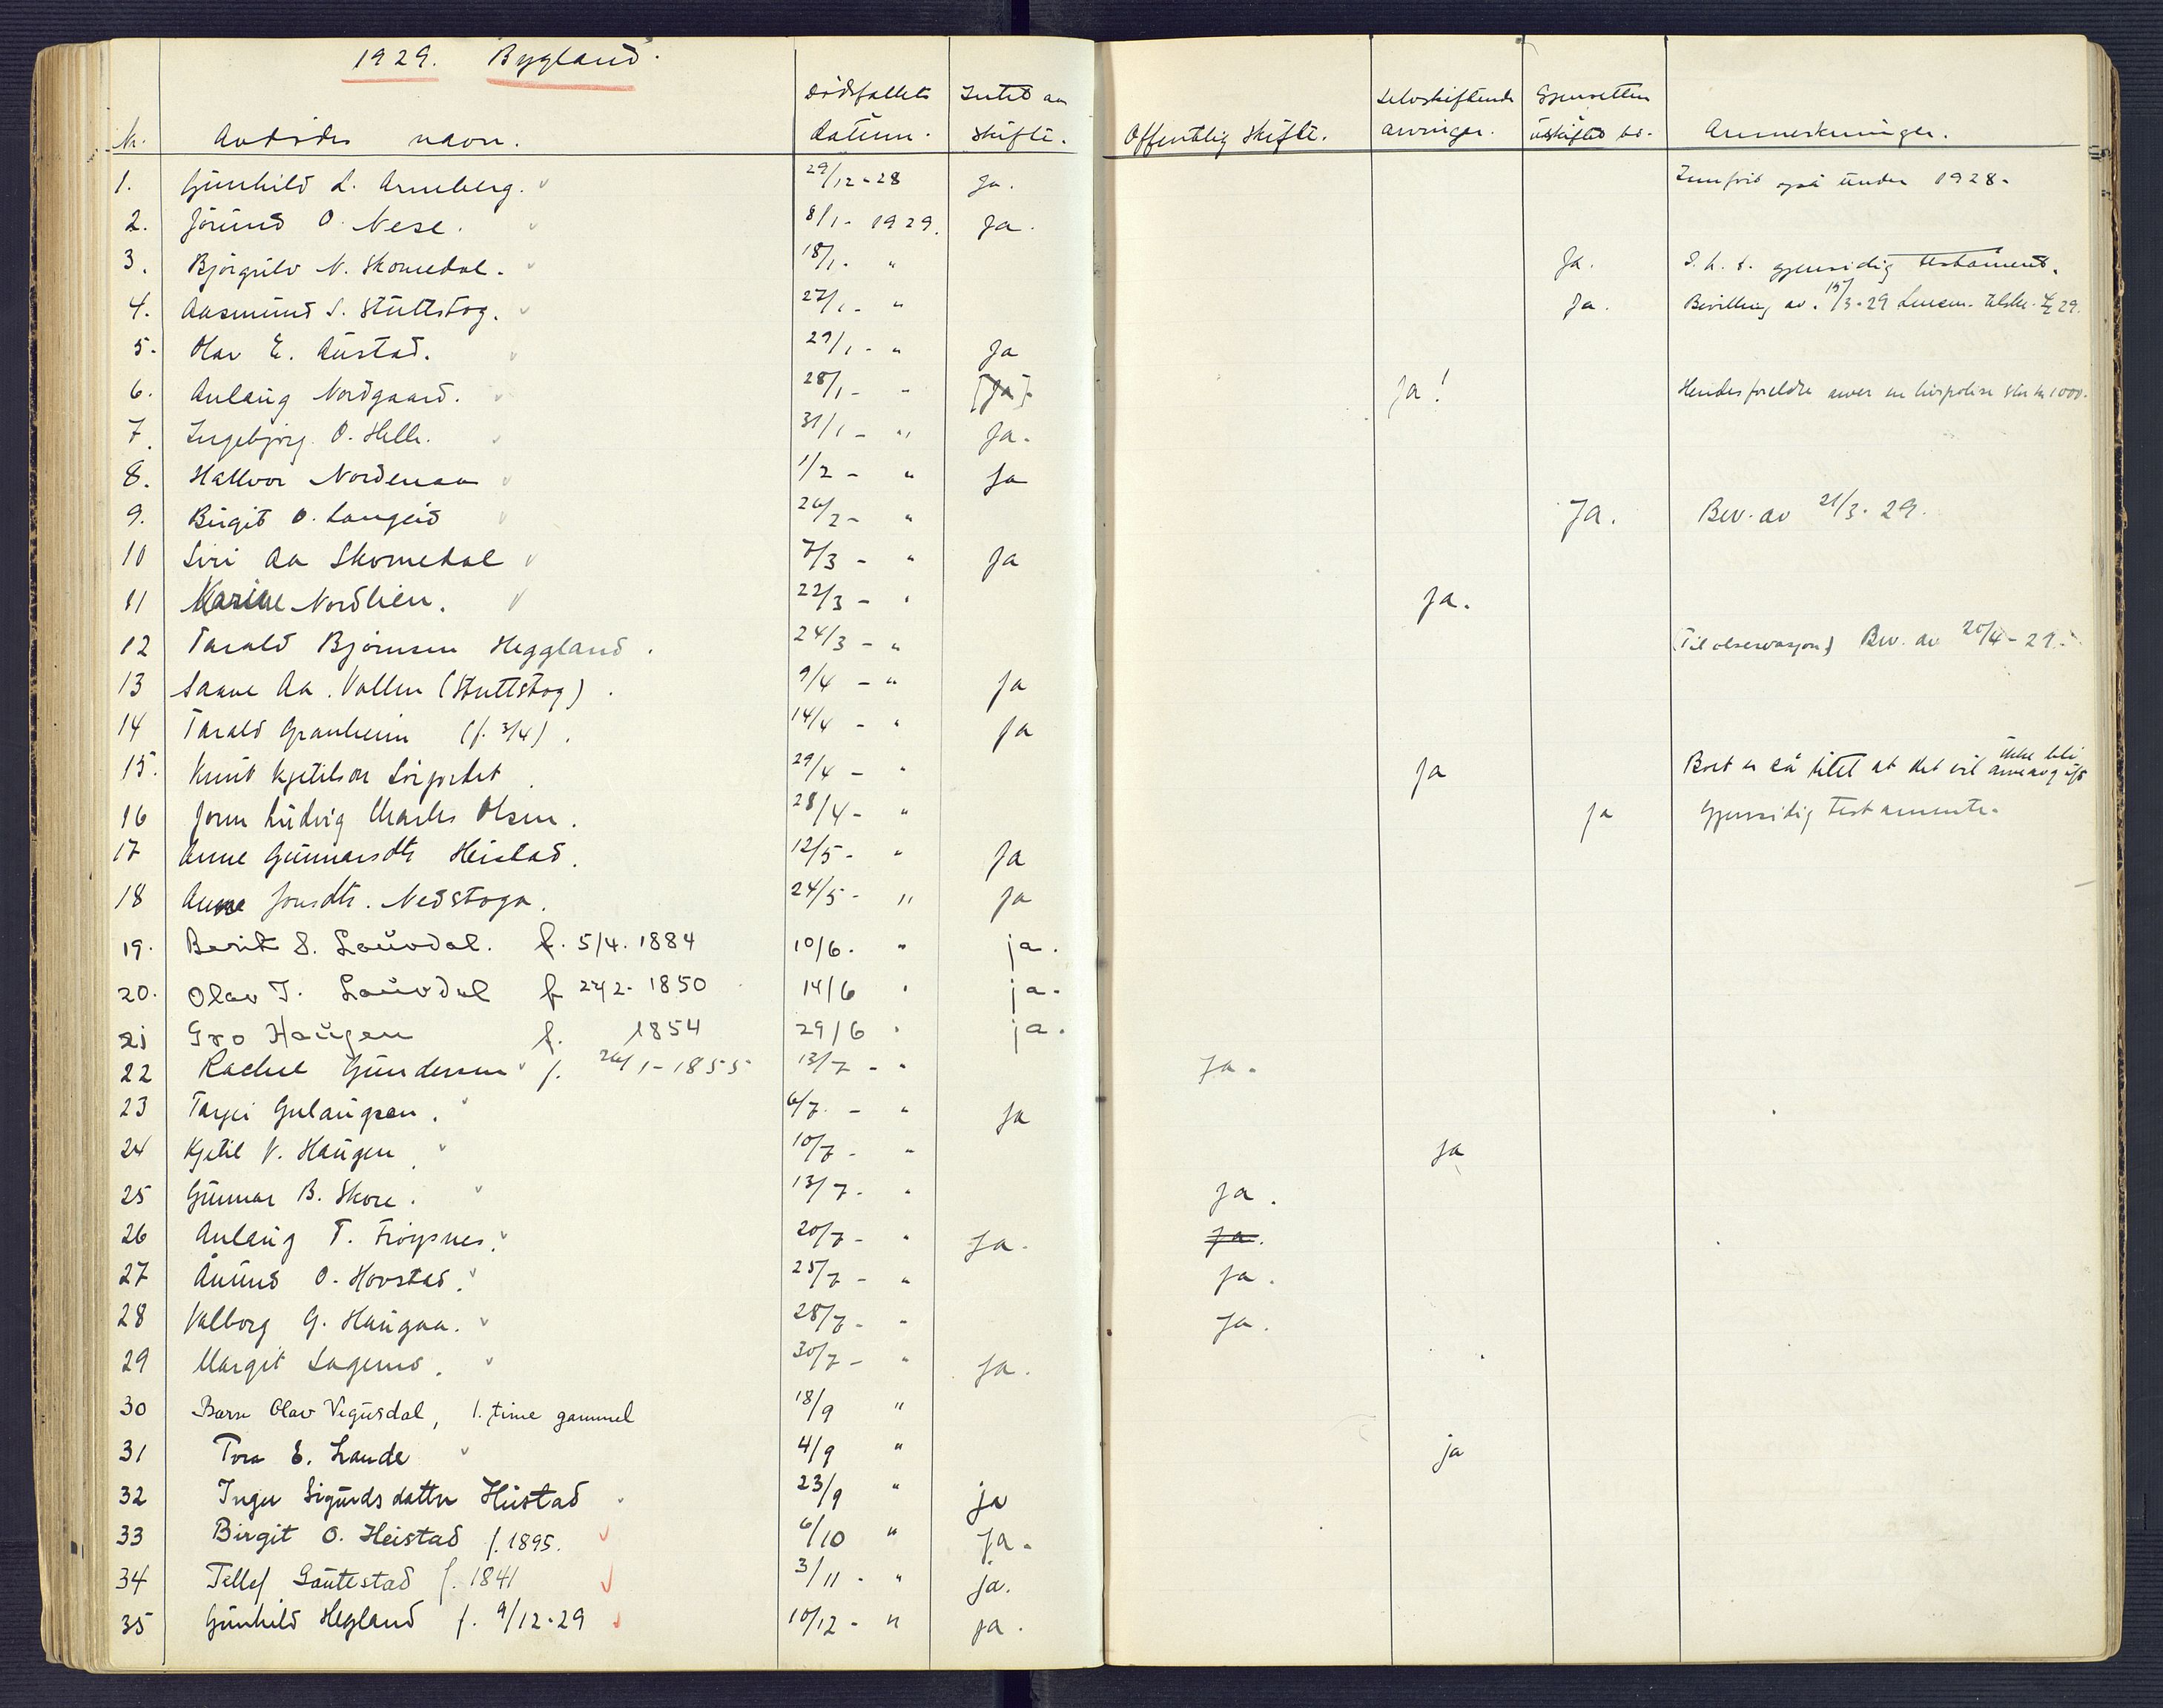 1929. Bygland.
Nr. Avdødes navn. Dødsfallets datum. Intet an skifte. Offentlig skifte. Selvskiftende arvinger. Gjensitten i uskiftet bo. Anmerkninger.
1. Gunhild L. Armberg. 29/12-28 Ja. også under 1928.
2. Jorund O. Nese. 8/1- 1929. Ja.
3. Bjørgulv N. Skomedal. 18/1- " Ja. gjensidig testament.
4. Aasmund S. Stuttstog. 27/1- " Ja. Bevilling av 15/3-29
5. Olav E. Austad. 29/1- " Ja
6. Aulaug Nordgaard. 28/1- " [Ja]. Ja! Hendes foreldre arver en livspolise kr 1000.
7. Ingebjørg O. Helle. 31/1- " Ja.
8. Hallvor Nordenaa 1/2- " Ja
9. Birgit O. Langeid 26/2- " Ja. Bev. av 21/3. 29.
10 Siri Aa Skomedal 7/3 - " Ja
11 Karine Nordlien. 22/3 - " Ja.
12 Tarald Bjørnsen Heggland. 24/3 - " (Til observasjon) Bev. av 20/4-29.
13 Aa. Vollen (Stuttstog). 9/4 - " Ja
14 Tarald Granheim (f. 3/4). 14/4 - " Ja
15. Knut Kjetilson 29/4 - " Ja Boet er så litet at det vil ikke bli arveavgift
16 Jorm Ludvig Charles Olsen. 28/4- " Ja Gjensidig testamente.
17 Anne Gunnarsdtr Heistad. 12/5- " Ja
18 Anne Jonsdtr. Nedstoga. 24/5- " Ja
19. Berit S. Lauvdal. f. 5/4. 1884 10/6. " ja.
20. Olav T. Lauvdal f 27/2- 1850 14/6 " ja.
21 Gro Haugen f. 1854 29/6 " ja.
22 Rachel Gundersen f. 26/1-1855 13/7 - " Ja.
23 Targei 6/7. - " Ja
24 Kjetil V. Haugen 10/7 - " Ja
25 Gunnar B. Skore. 13/7- " Ja.
26 Aulaug T. Frøysnes. 20/7- " Ja. Ja.
27 Aunund O. Hovstad. 25/7 - " Ja.
28 Valborg G. Haugaa. 28/7- " Ja.
29 Margit 30/7 - " Ja.
30 Barn Olav Vegusdal, 1. time gammel 18/9 "
31 Tora E. Lande 4/9 " ja
32 Inger Sigurdsdatter Heistad 23/9 " ja
33 Birgit O. Heistad f. 1895. 6/10 " Ja.
34 Tellef Gautestad f. 1841 3/11 - " ja.
35 Gunhild Hegland f. 9/12-29 10/12 - " ja.